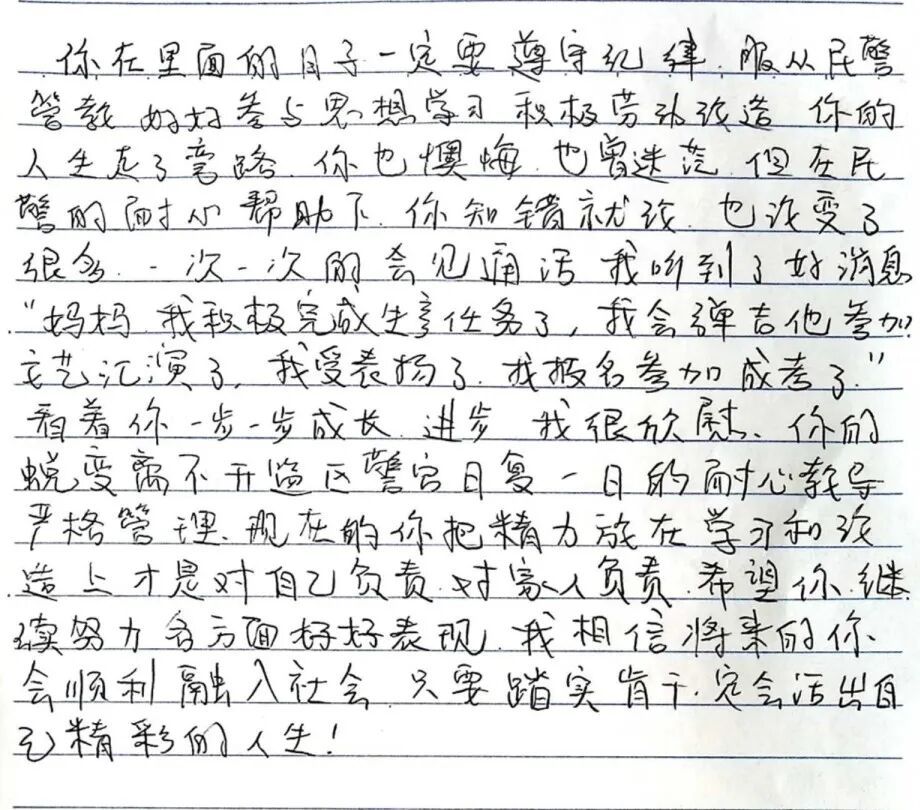 你在里面的日子一定要遵守纪律,服从民警
管教 好好参与思想学习 积极劳动改造 你的
人生走了弯路.你也懊悔.也曾迷茫.但在民
警的耐心帮助下.你知错就改.也改变了
很多.一次一次的会见通话 我听到了好消息
"妈妈.我积极完成生产任务了,我会弹吉他参加
文艺汇演了,我受表扬了.我报名参加成考了."
看着你一步一步成长.进步.我很欣慰、你的
蜕变离不开监区警官日复一日的耐心教导
严格管理.现在的你把精力放在学习和改
造上才是对自己负责.对家人负责.希望你.继
续努力各方面好好表现.我相信将来的你
会顺利融入社会.只要踏实肯干.定会活出自
己精彩的人生!